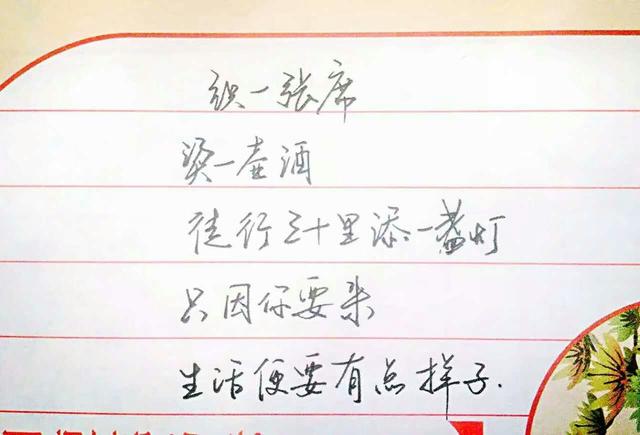 织一张席
烫一壶酒
徒行三十里添一盏灯
只因你要来
生活便要有点样子.